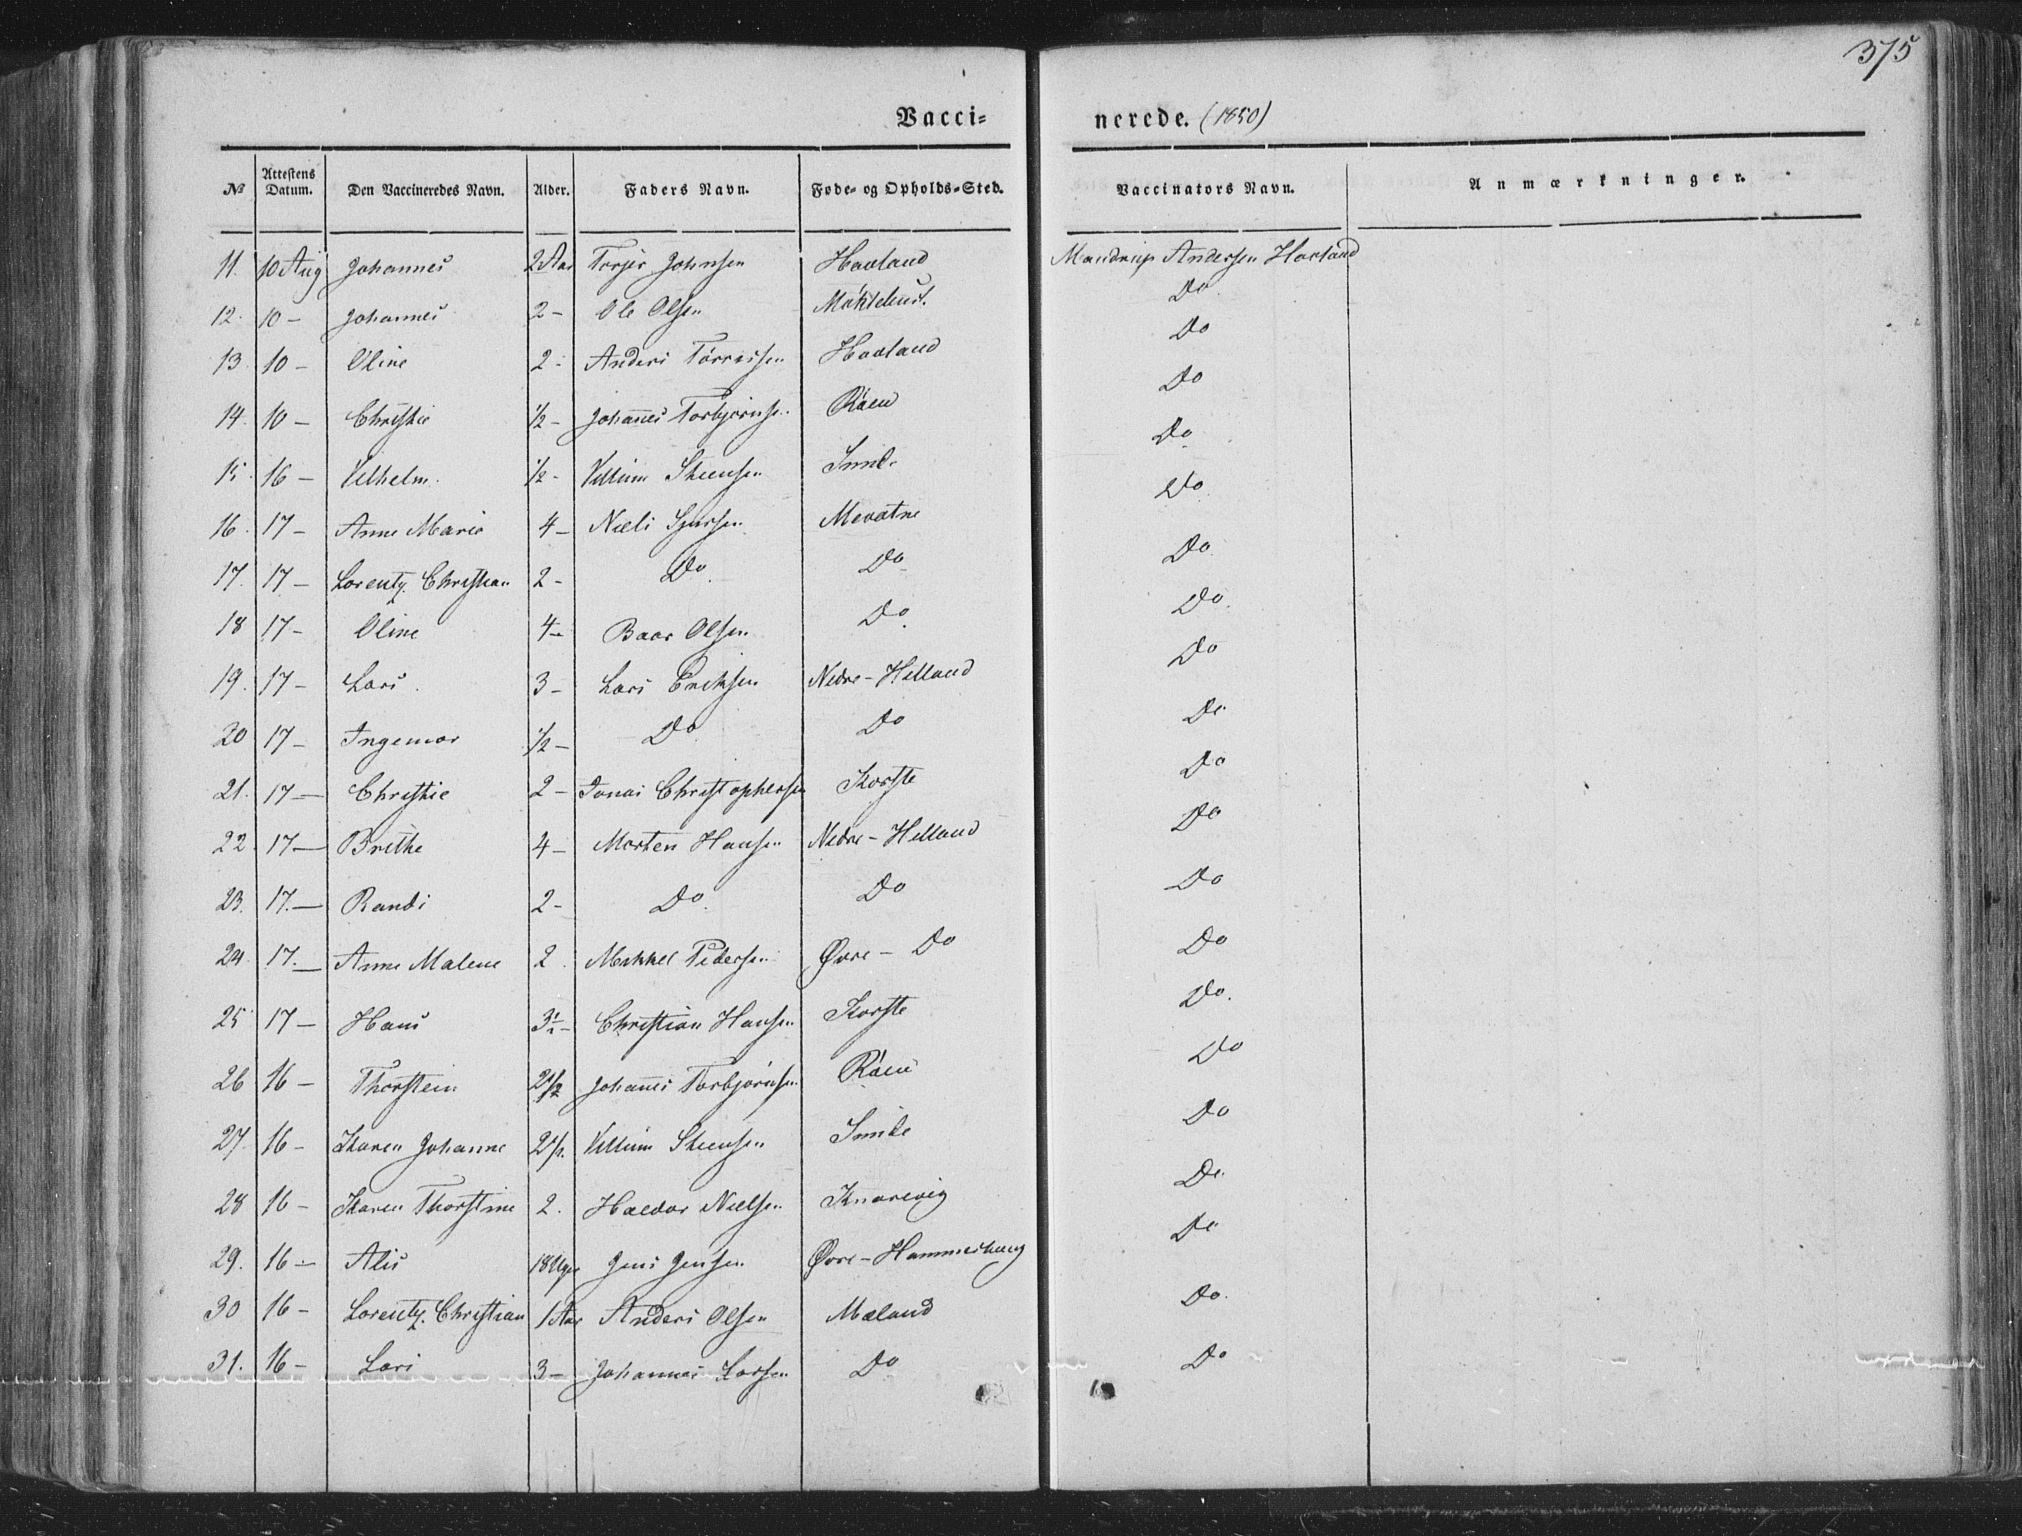 375
Vacci= nerede. (1850)
№ Attestens Datum. Den Vaccineredes Navn. Alder. Faders Navn. Føde- og Opholds-Sted. Vaccinators Navn. Anmærkninger.
11. 10 Aug Johannes 2 Aar Terjer Johnsen Havland Mandrup Andersen Havland
12. 10 – Johannes 2 – Ole Olsen Do
13 10 – Oline 2 – Anders Tørresen Havland Do
14. 10 – Christie 1/2 – Johannes Torbjørnsen Røen Do
15. 16 – Vilhelm. 1/2 – Villum Steensen Do
16. 17 – Anne Marie 4 – Niels Mevatne Do
17. 17 – Lorentz Christian 2 – Do Do Do
18 17 – Oline 4 – Baar Olsen Do Do.
19. 17 – Lars. 3 – Lars Eriksen Nedre – Helland Do
20 17 – Ingemor 1/2 – Do Do Do
21. 17 – Christie 2 – Jonas Christophersen Korste Do
22 17 – Brithe 4 – Morten Hansen Nedre – Helland Do
23. 17. – Randi 2 – Do Do Do
24. 17. – Anne Malene 2. Mekkel Pedersen Øvre – Do Do
25 17 – Hans 3 1/2 – Christian Hansen Korste Do.
26 16 – Thorstein 2 1/2 Johannes Torbjørnsen Røen Do
27. 16 – Karen Johanne 2 1/2. Villum Steensen Do
28 16 – Karen Thorstine 2. Haldor Nielsen Knarevig Do
29. 16 – Alis 18 Uger Jens Jensen Øvre – Hammerhaug Do
30 16 – Lorentz Christian 1 Aar Anders Olsen Mæland Do.
31. 16 – Lars 3 – Johannes Larsen Do Do